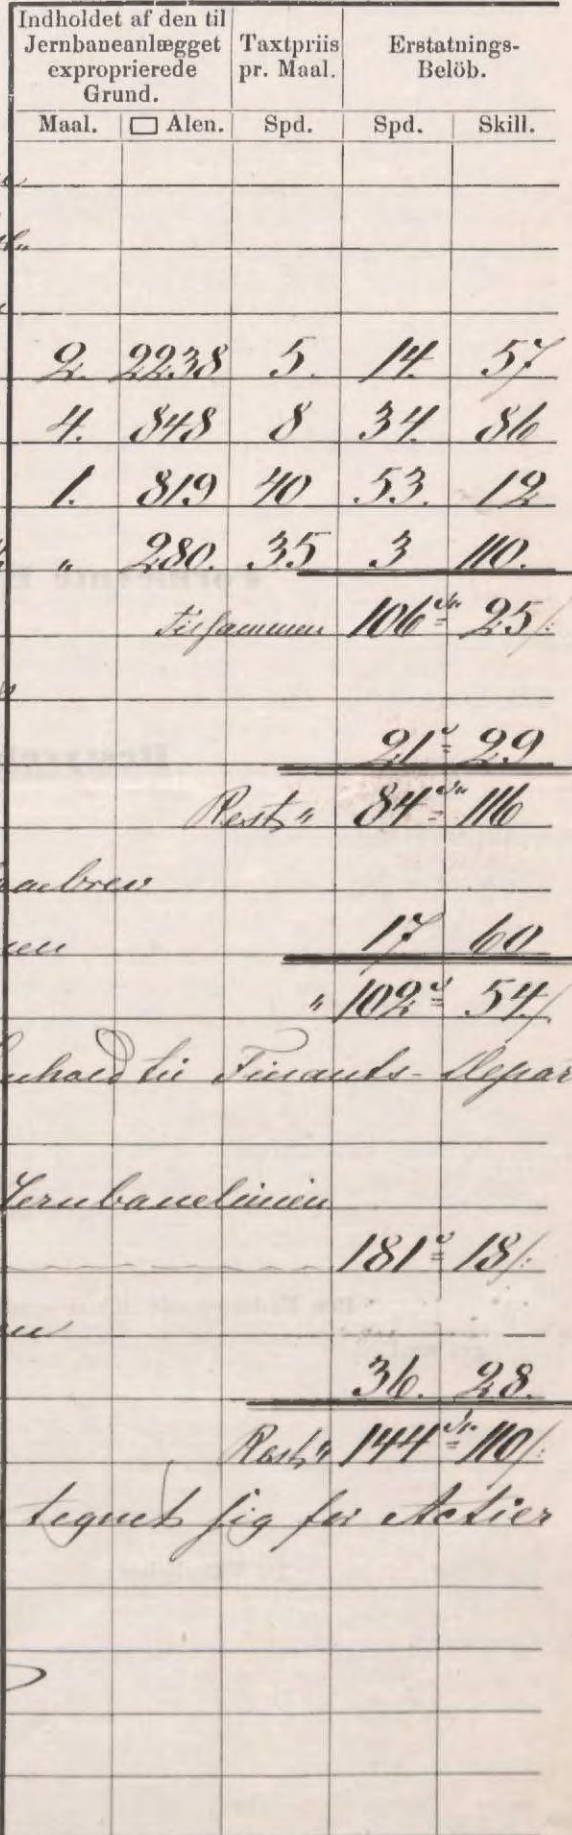 Indholdet af den til Jernbaneanlægget exproprierede Grund. Taxtpriis pr. Maal. Erstatnings-Belöb.
Maal. □ Alen. Spd. Spd. Skill.
2. 2238 5. 14. 57
4. 848 8 34. 86
1. 819 40 53. 12
" 280. 35 3 110.
Tilsammen 106 25/:
21 29
Rest " 84 116
17 60
" 102 54/
til Finants-Depar
Jernbanelinien
181 18/:
36. 28.
Rest " 144 110/:
tegnet sig for Actier